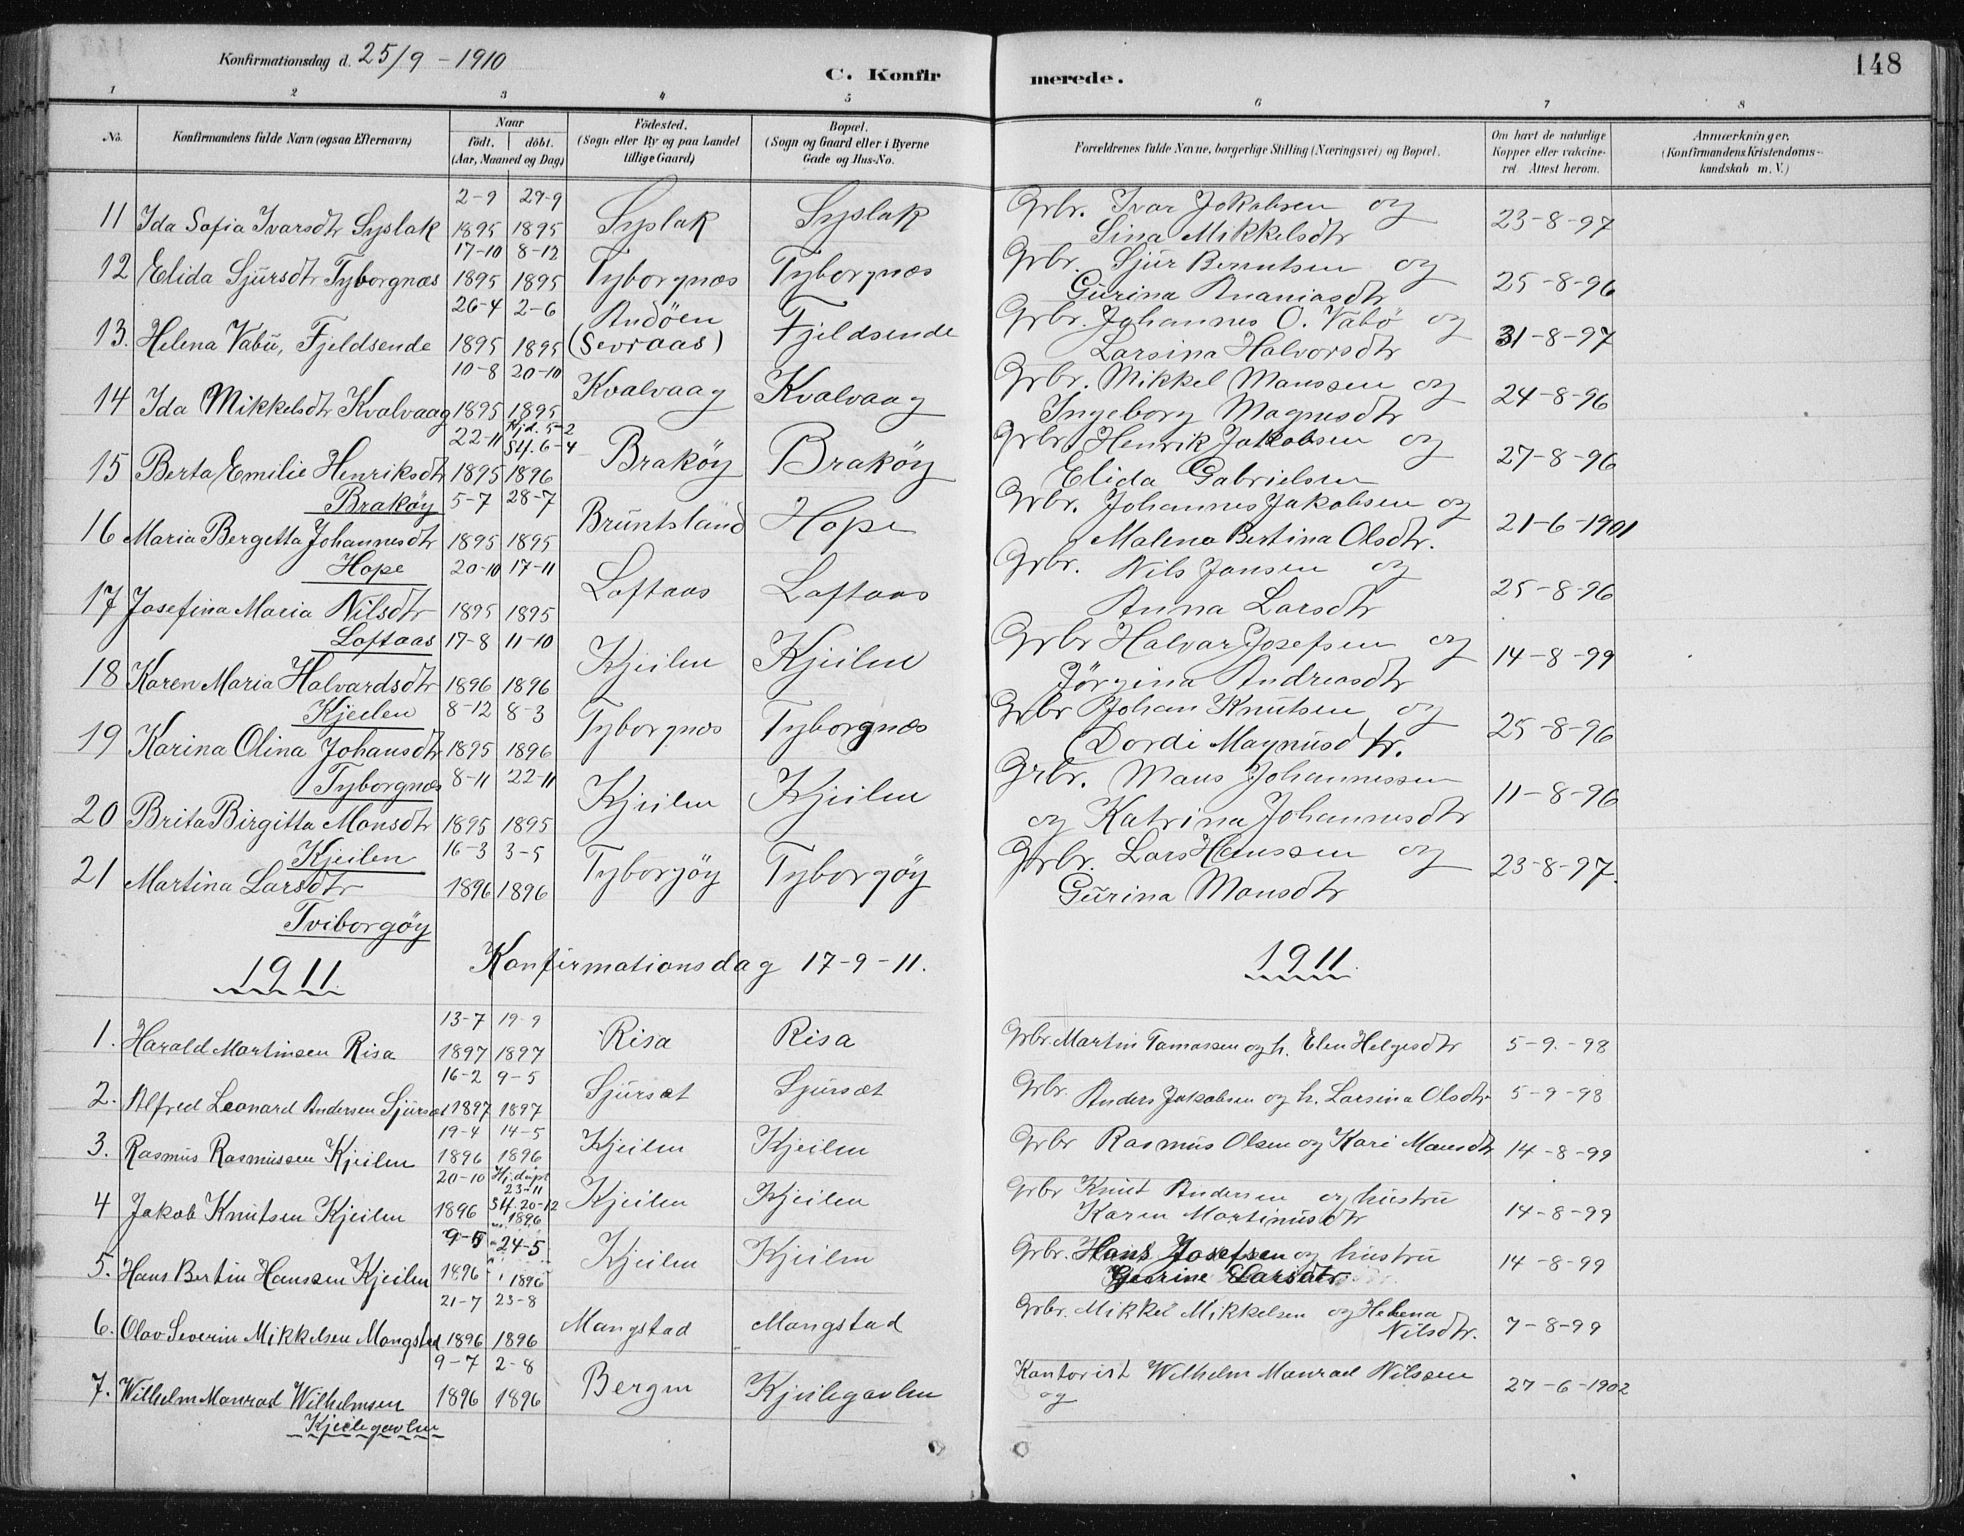 Konfirmationsdag d. 25/9 - 1910
C. Konfirmerede.
148
1 2 3 4 5 6 7 8
No.
Konfirmandens fulde Navn (ogsaa Efternavn)
Naar
født. døbt.
(Aar, Maaned og Dag)
Födested.
(Sogn eller By og paa Landet
tillige Gaard)
Bopæl.
(Sogn og Gaard eller i Byerne
Gade og Hus-No.
Forældrenes fulde Navne, borgerlige Stilling (Næringsvei) og Bopæl.
Om havt de naturlige
Kopper eller vakcine-
ret. Attest herom.
Anmærkninger.
(Konfirmandens Kristendoms-
kundskab m. V.)
2-9 29-9
11 Ida Sofia Ivarsdtr Syslak 1895 1895 Syslak Syslak Grbr. Ivar Jokobsen og
Sina Mikkelsdtr 23-8-97
17-10 8-12
12 Elida Sjürsdtr Tyborgnæs 1895 1895 Tyborgnæs Tyborgnæs Grbr. Sjür Berntsen og
Gürina Ananiasdtr 25-8-96
26-4 2-6
13. Helena Vabü, Fjeldsende 1895 1895 Andöen
(Sevraas) Fjeldsende Grbr. Johannes O. Vabö og
Larsina Halvorsdtr 31-8-97
10-8 20-10
14 Ida Mikkelsdtr Kvalvaag 1895 1895 Kvalvaag Kvalvaag Grbr. Mikkel Monssen og
Ingeborg Magnusdtr 24-8-96
22-11 Hjd. 5-2
St. 6-4
15 Berta Emilie Henriksdtr 1895 1896 Braköy Braköy Grbr. Henrik Jakobsen og
Elida Gabrielsen 27-8-96
Braköy 5-7 28-7
16 Maria Bergetta Johannesdtr 1895 1895 Brüntsland Hope Grbr. Johannes Jakobsen og
Malena Bertina Olsdtr. 21-6-1901
Hope 20-10 17-11
17 Josefina Maria Nilsdtr 1895 1895 Loftaas Loftaas Grbr. Nils Jansen og
Anna Larsdtr 25-8-96
Loftaas 17-8 11-10
18 Karen Maria Halvardsdtr 1896 1896 Kjeilen Kjeilen Grbr Halvar Josefsen og
Jörgina Andreasdtr 14-8-99
Kjeilen 8-12 8-3
19 Karina Olina Johansdtr 1895 1896 Tyborgnæs Tyborgnæs Grbr Johan Knutsen og
Dordi Magnusdtr. 25-8-96
Tyborgnæs 8-11 22-11
20 Brita Birgitta Monsdtr 1895 1895 Kjeilen Kjeilen Grbr. Mons Johannessen
og Katrina Johannesdtr 11-8-96
Kjeilen 16-3 3-5
21 Martina Larsdtr 1896 1896 Tyborgöy Tyborgöy Grbr. Lars Hanssen og
Gürina Monsdtr 23-8-97.
Tviborgöy
1911 Konfirmationsdag 17-9-11. 1911
13-7 19-9
1. Harald Martinsen Risa 1897 1897 Risa Risa Grbr Martin Tomassen og h. Elen Helgesdtr 5-9-98
16-2 9-5
2. Alfred Leonard Andersen Sjürsæt 1897 1897 Sjürsæt Sjürsæt Grbr. Anders Jakobsen og h. Larsina Olsdtr 5-9-98
19-4 14-5
3. Rasmus Rasmussen Kjeilen 1896 1896 Kjeilen Kjeilen Grbr Rasmus Olsen og Kari Monsdtr 14-8-99
20-10 Hj.döpt
23-11
4 Jakob Knütsen Kjeilen 1896 St. 20-12
1896 Kjeilen Kjeilen Grbr Knüt Andersen og hüstrü
Karen Martinüsdtr 14-8-99
9-5 24-5
5. Hans Bertin Hanssen Kjeilen 1896 1896 Kjeilen Kjeilen Grbr. Hans Josefsen og hüstrü
Larsdtr 14-8-99
21-7 23-8
6. Olav Severin Mikkelsen Mongstad 1896 1896 Mongstad Mongstad Grbr. Mikkel Mikkelsen og Helena
Nilsdtr. 7-8-99
9-7 2-8
7. Wilhelm Monrad Wilhelmsen 1896 1896 Bergen Kjeilegavlen Kontorist Wilhelm Monrad Nilssen
og 27-6-1902
Kjeilegavlen